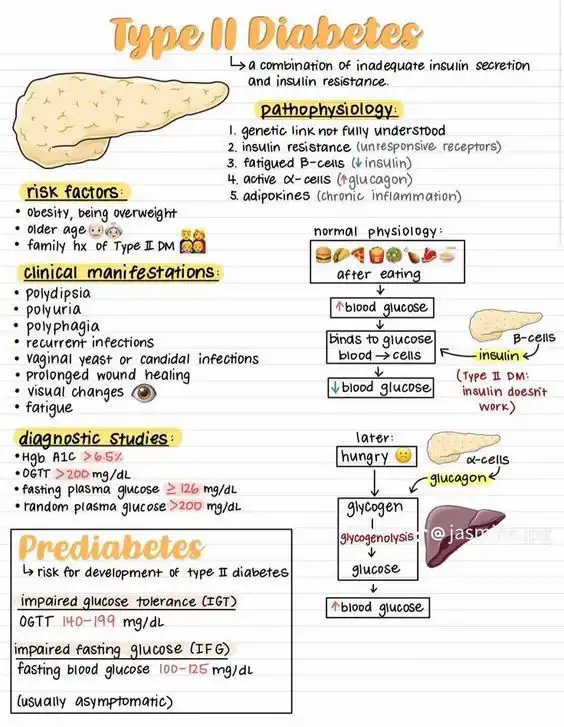 Type II Diabetes
↳ a combination of inadequate insulin secretion
and insulin resistance.
pathophysiology:
1. genetic link not fully understood
2. insulin resistance (unresponsive receptors)
3. fatigued β-cells (↓insulin)
4. active α-cells (↑glucagon)
5. adipokines (chronic inflammation)
risk factors:
• obesity, being overweight
• older age
• family hx of Type II DM
clinical manifestations:
• polydipsia
• polyuria
• polyphagia
• recurrent infections
• vaginal yeast or candidal infections
• prolonged wound healing
• visual changes
• fatigue
diagnostic studies:
• Hgb A1C >6.5%
• OGTT >200 mg/dL
• fasting plasma glucose ≥ 126 mg/dL
• random plasma glucose >200 mg/dL
Prediabetes
↳ risk for development of type II diabetes
impaired glucose tolerance (IGT)
OGTT 140-199 mg/dL
impaired fasting glucose (IFG)
fasting blood glucose 100-125 mg/dL
(usually asymptomatic)
normal physiology:
after eating
↑blood glucose
binds to glucose
blood → cells
↓blood glucose
β-cells
insulin
(Type II DM:
insulin doesn't
work)
later:
hungry
α-cells
glucagon
glycogen
glycogenolysis
glucose
↑blood glucose